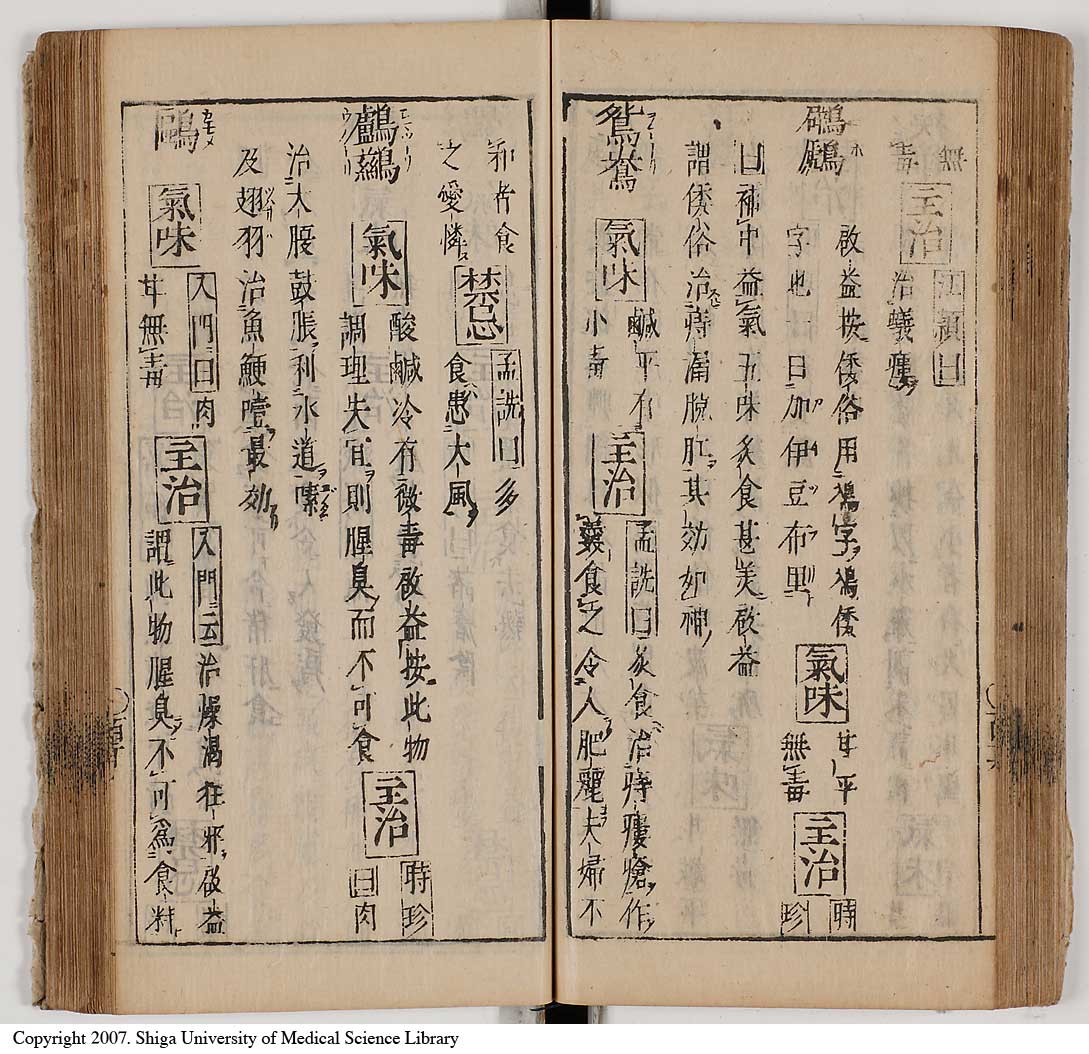 無
毒
主治
江頴曰
治蟻瘻
鸊鷉
啟益按倭俗用鳰字鳰倭
字也曰加伊豆布里
氣味
甘平
無毒
主治
時
珍
曰補中益氣五味炙食甚美啟益
謂倭俗治痔漏脱肛其効如神
鴛鴦
氣味
鹹平有
小毒
主治
孟詵曰炙食治痔瘻瘡作
羹食之令人肥麗夫婦不
和者食
之愛憐
禁忌
孟詵曰多
食患大風
鸕鷀
氣味
酸鹹冷有微毒啟益按此物
調理失宜則腥臭而不可食
主治
時珍
曰肉
治大腰鼓脹利水道嗉
及翅羽治魚鯁噎最効
鷗
カモメ
氣味
入門曰肉
甘無毒
主治
入門云治燥渴狂邪啟益
謂此物腥臭不可為食料
Copyright 2007. Shiga University of Medical Science Library